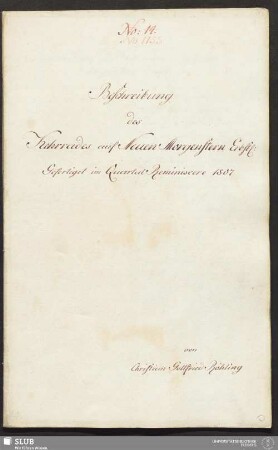 No: 14.
Beschreibung
des
Kehrrades auf Neuen Morgenstern Erbst.
Gefertiget im Quartal Reminiscere 1807
von
Christian Gottfried Röhling
SLUB
Wir führen Wissen.